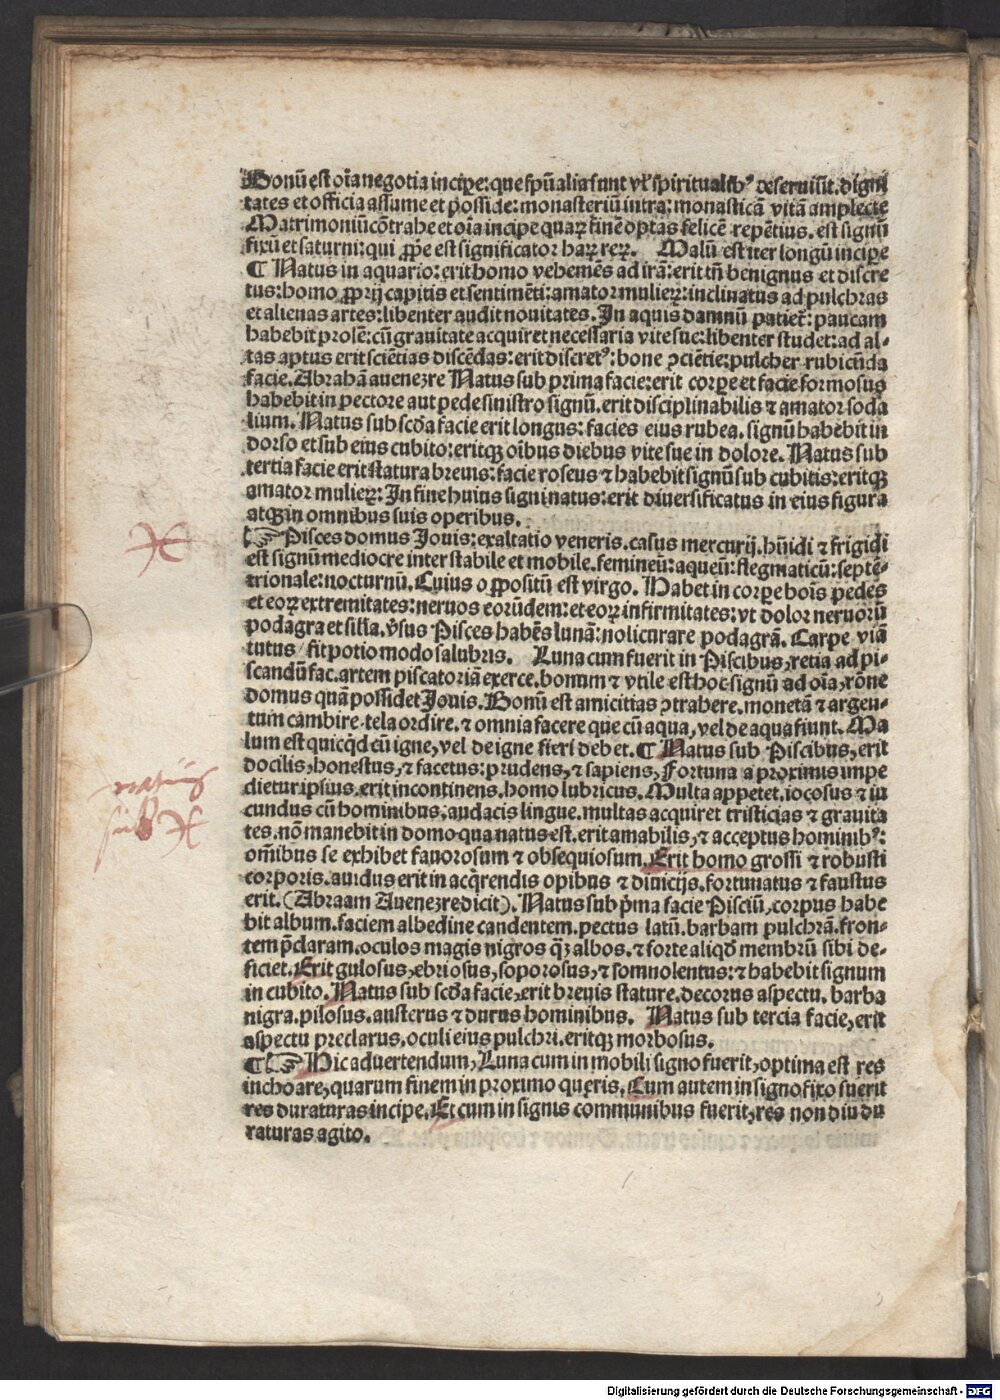 Bonū est oīa negotia incipe: que spūalia sunt vl' spiritualibꝰ deseruiūt. digni
tates et officia assume et posside: monasteriū intra: monasticā vitā amplecte
Matrimoniū cōtrahe et oīa incipe quaꝝ finē optas felicē repentius. est signū
fixū et saturni: qui ꝓpe est significator haꝝ reꝝ. Malū est iter longū incipe
¶ Natus in aquario: erit homo vehemēs ad irā: erit tñ benignus et discre
tus: homo ꝓprij capitis et sentimēti: amator mulieꝝ: inclinatus ad pulchras
et alienas artes: libenter audit nouitates. In aquis damnū patiet̄: paucam
habebit prolē: cū grauitate acquiret necessaria vite sue: libenter studet: ad al-
tas aptus erit sciētias discēdas: erit discretꝰ: bone ꝯciētie: pulcher rubicūda
facie. Abrahā auenezre Natus sub prima facie: erit corpe et facie formosus
habebit in pectore aut pede sinistro signū. erit disciplinabilis ⁊ amator soda
lium. Natus sub scd̄a facie erit longus: facies eius rubea. signū habebit in
dorso et sub eius cubito: eritqꝫ oībus diebus vite sue in dolore. Natus sub
tertia facie erit statura breuis: facie roseus ⁊ habebit signū sub cubitis: eritqꝫ
amator mulieꝝ: In fine huius signi natus: erit diuersificatus in eius figura
atqꝫ in omnibus suis operibus.
☞ Pisces domus Jouis: exaltatio veneris. casus mercurij. hūidi ⁊ frigidi
est signū mediocre inter stabile et mobile. femineū: aqueū: flegmaticū: septē-
trionale: nocturnū. Cuius oppositū est virgo. Habet in corpe hoīs pedes
et eoꝝ extremitates: neruos eorūdem: et eoꝝ infirmitates: vt dolor neruorū
podagra et silia. v̄sus Pisces habēs lunā: noli curare podagrā. Carpe viā
tutus / fit potio modo salubris. Luna cum fuerit in Piscibus, retia ad pi-
scandū fac. artem piscatoriā exerce. bonum ⁊ vtile est hoc signū ad oīa, rōne
domus quā possidet Jouis. Bonū est amicitias ꝯtrahere. monetā ⁊ argen-
tum cambire. tela ordire. ⁊ omnia facere que cū aqua, vel de aqua fiunt. Ma
lum est quicqd̄ cū igne, vel de igne fieri debet. ¶ Natus sub Piscibus, erit
docilis, honestus, ⁊ facetus: prudens, ⁊ sapiens, Fortuna a proximis impe
dietur ipsius. erit incontinens. homo lubricus. Multa appetet. iocosus ⁊ iu
cundus cū hominibus. audacis lingue. multas acquiret tristicias ⁊ grauita
tes. nō manebit in domo qua natus est. erit amabilis, ⁊ acceptus hominibꝰ:
om̄ibus se exhibet fauorosum ⁊ obsequiosum. Erit homo grossi ⁊ robusti
corporis. auidus erit in acq̄rendis opibus ⁊ diuicijs. fortunatus ⁊ faustus
erit. (Abraam Auenezre dicit). Natus sub p̄ma facie Pisciū, corpus habe
bit album. faciem albedine candentem. pectus latū. barbam pulchrā. fron-
tem p̄claram. oculos magis nigros q̄ꝫ albos. ⁊ forte aliqd̄ membrū sibi de-
ficiet. Erit gulosus, ebriosus, soporosus, ⁊ somnolentus: ⁊ habebit signum
in cubito. Natus sub scd̄a facie, erit breuis stature. decorus aspectu. barba
nigra. pilosus. austerus ⁊ durus hominibus. Natus sub tercia facie, erit
aspectu preclarus. oculi eius pulchri. eritqꝫ morbosus.
¶ ☞ Hic aduertendum, Luna cum in mobili signo fuerit, optima est res
inchoare, quarum finem in proximo queris. Cum autem in signo fixo fuerit
res duraturas incipe. Et cum in signis communibus fuerit, res non diu du
raturas agito.
♓
♓
Digitalisierung gefördert durch die Deutsche Forschungsgemeinschaft - DFG